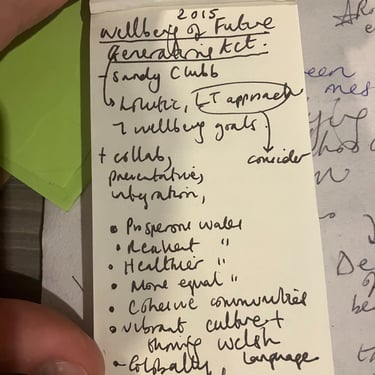 2015
Wellbeing of Future
Generations Act.
- Sandy Clubb
Holistic, LT approach
7 wellbeing goals
consider
+ collab,
preventative,
integration,
• Prosperous Wales
• Resilient "
• Healthier "
• More equal "
• Cohesive communities
• Vibrant culture +
thriving Welsh
Language
- Globally,